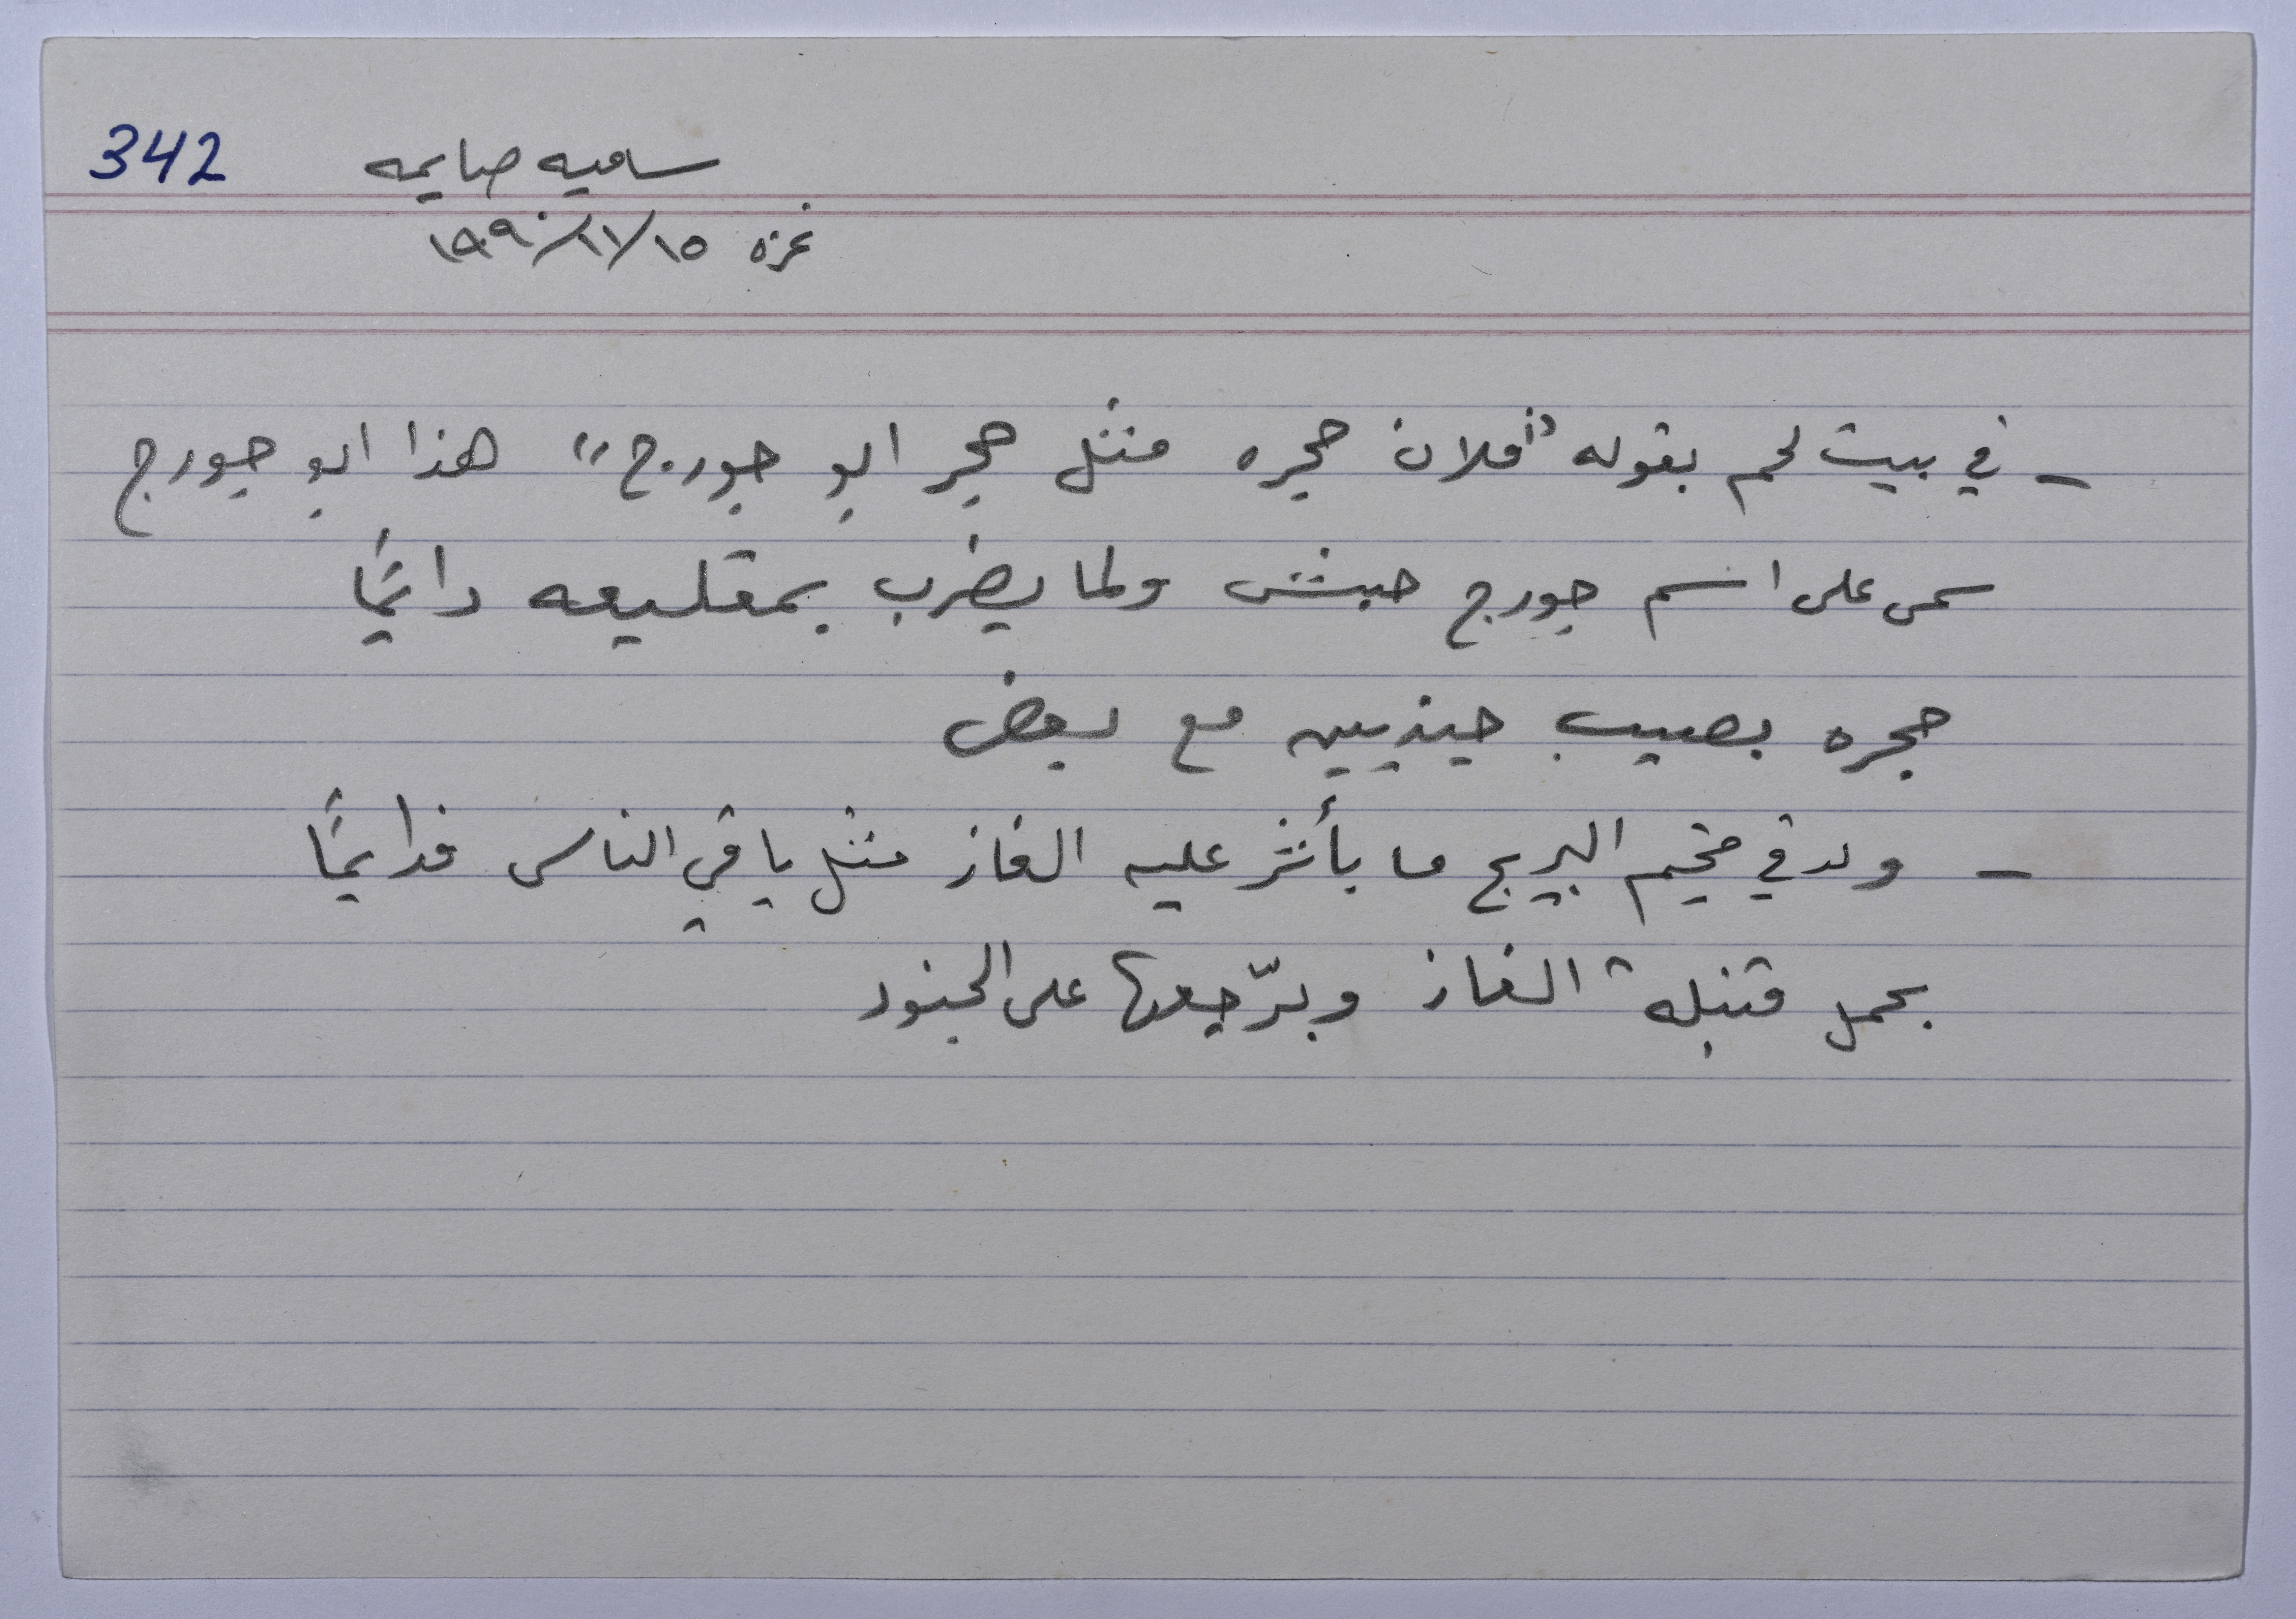 342
ساميه صايمه
غزه ١٥/١١/١٩٩٠
- في بيت لحم بقوله "فلان حجره مثل حجر ابو جورج" هذا ابو جورج
سمى على اسم جورج حبش ولما يضرب بمقليعه دائمًا
حجره بصيب جنديين مع بعض
- ولد في مخيم البريج ما بأثر عليه الغاز مثل باقي الناس فدايمًا
بحمل قنبلة الغاز وبرّجعها على الجنود